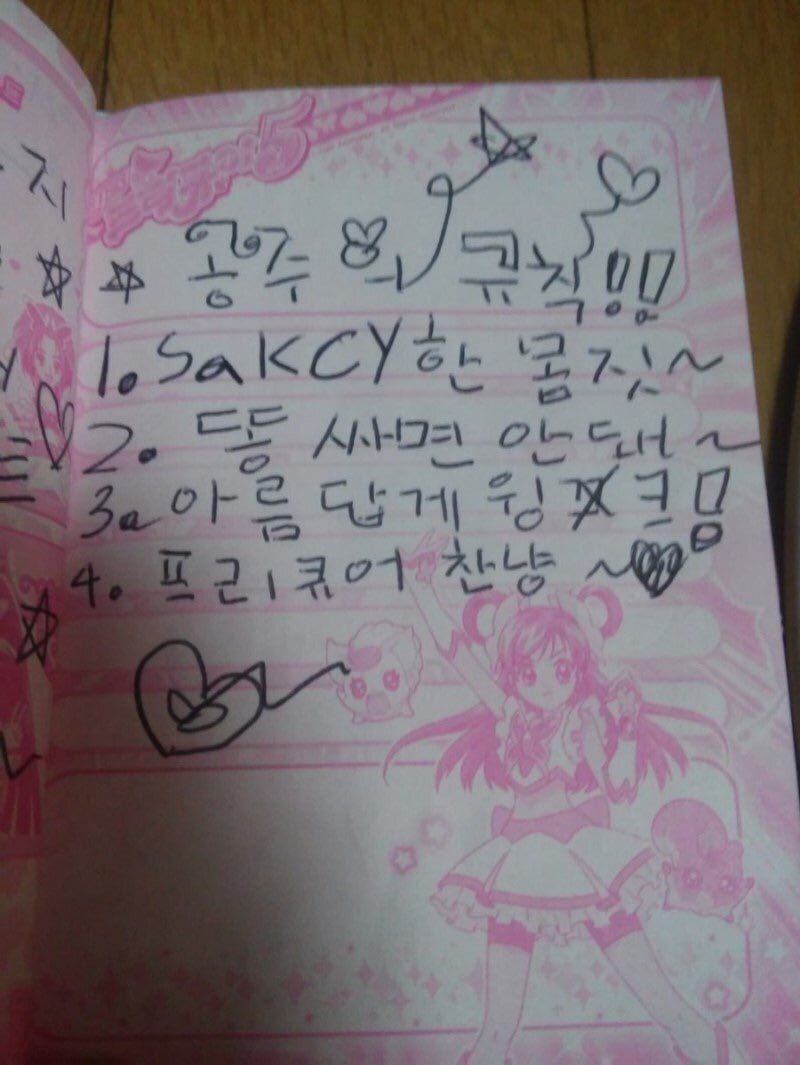 공주의 큐칙!!
1. SaKCY한 몸짓~
2. 똥 싸면 안돼~
3. 아름답게 윙크!
4. 프리큐어 찬냥~